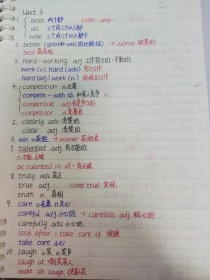 Unit 3
1. { both 两个都 both…and…
all 三个或三个以上都
none 三个或三个以上都不
2. better (good和well的比较级) → worse 更差的
best 最高级
3. hard-working adj. 工作努力的;辛勤的
work (v.) hard (adv.) 努力工作
hard (adj.) work (n.)
4. competition n. 比赛
compete with sb. 和某人竞争
competitive adj.
competitor n. 竞争者
5. clearly adv. 清楚地
clear adj. 清楚的
6. win v. 获胜 → winner 获胜者
7. talented adj. 有才能的
n. 才能,天赋
be talented in sth. 有天赋
8. truly adv. 真正
true adj. come true 实现
truth n. 真相
9. care v. 在意 n. 关心
careful adj. 小心的 → careless adj. 粗心的
carefully adv. 小心地
look after = take care of 照顾
take care 小心
10. laugh v. 笑 n. 笑声
laugh at 嘲笑某人
make sb. laugh 使某人笑